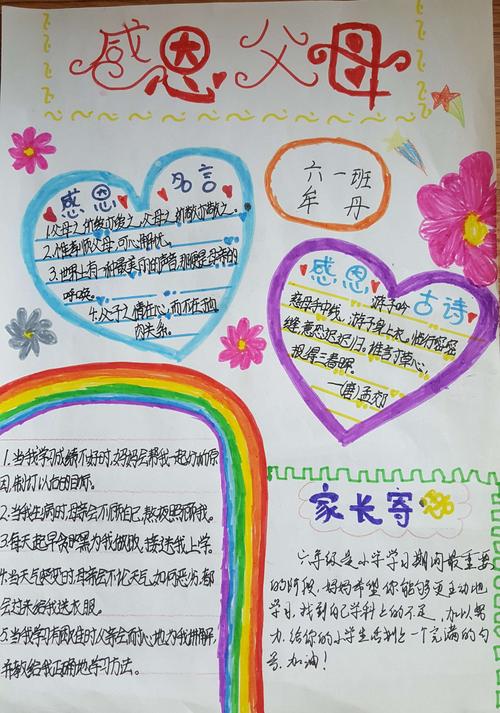 感恩父母
六一班
牟丹
感恩名言
1.父母之所爱亦爱之,父母之所敬亦敬之。
2.惟孝顺父母,可以解忧。
3.世界上有一种最美丽的声音,那便是母亲的
呼唤。
4.父子之情在心,而不在血
肉关系。
感恩古诗
游子吟
慈母手中线,游子身上衣,临行密密
缝,意恐迟迟归,谁言寸草心,
报得三春晖。
—(唐)孟郊
1.当我学习成绩不好时,妈妈会帮我一起分析原
因,制订以后的目标。
2.当我生病时,母亲会不顾自己,熬夜照顾我。
3.每天起早贪黑为我做饭,接送我上学。
4.当天气变时,母亲会不忆天气,如何恶劣,都
会过来给我送衣服。
5.当我学习有困难时父亲会耐心地为我讲解,
并教给我正确地学习方法。
家长寄
六年级是小学学习期间最重要
的阶段,妈妈希望你能够更主动地
学习,找到自己学科上的不足,加以努
力,给你的小学生活划上一个完满的句
号,加油!